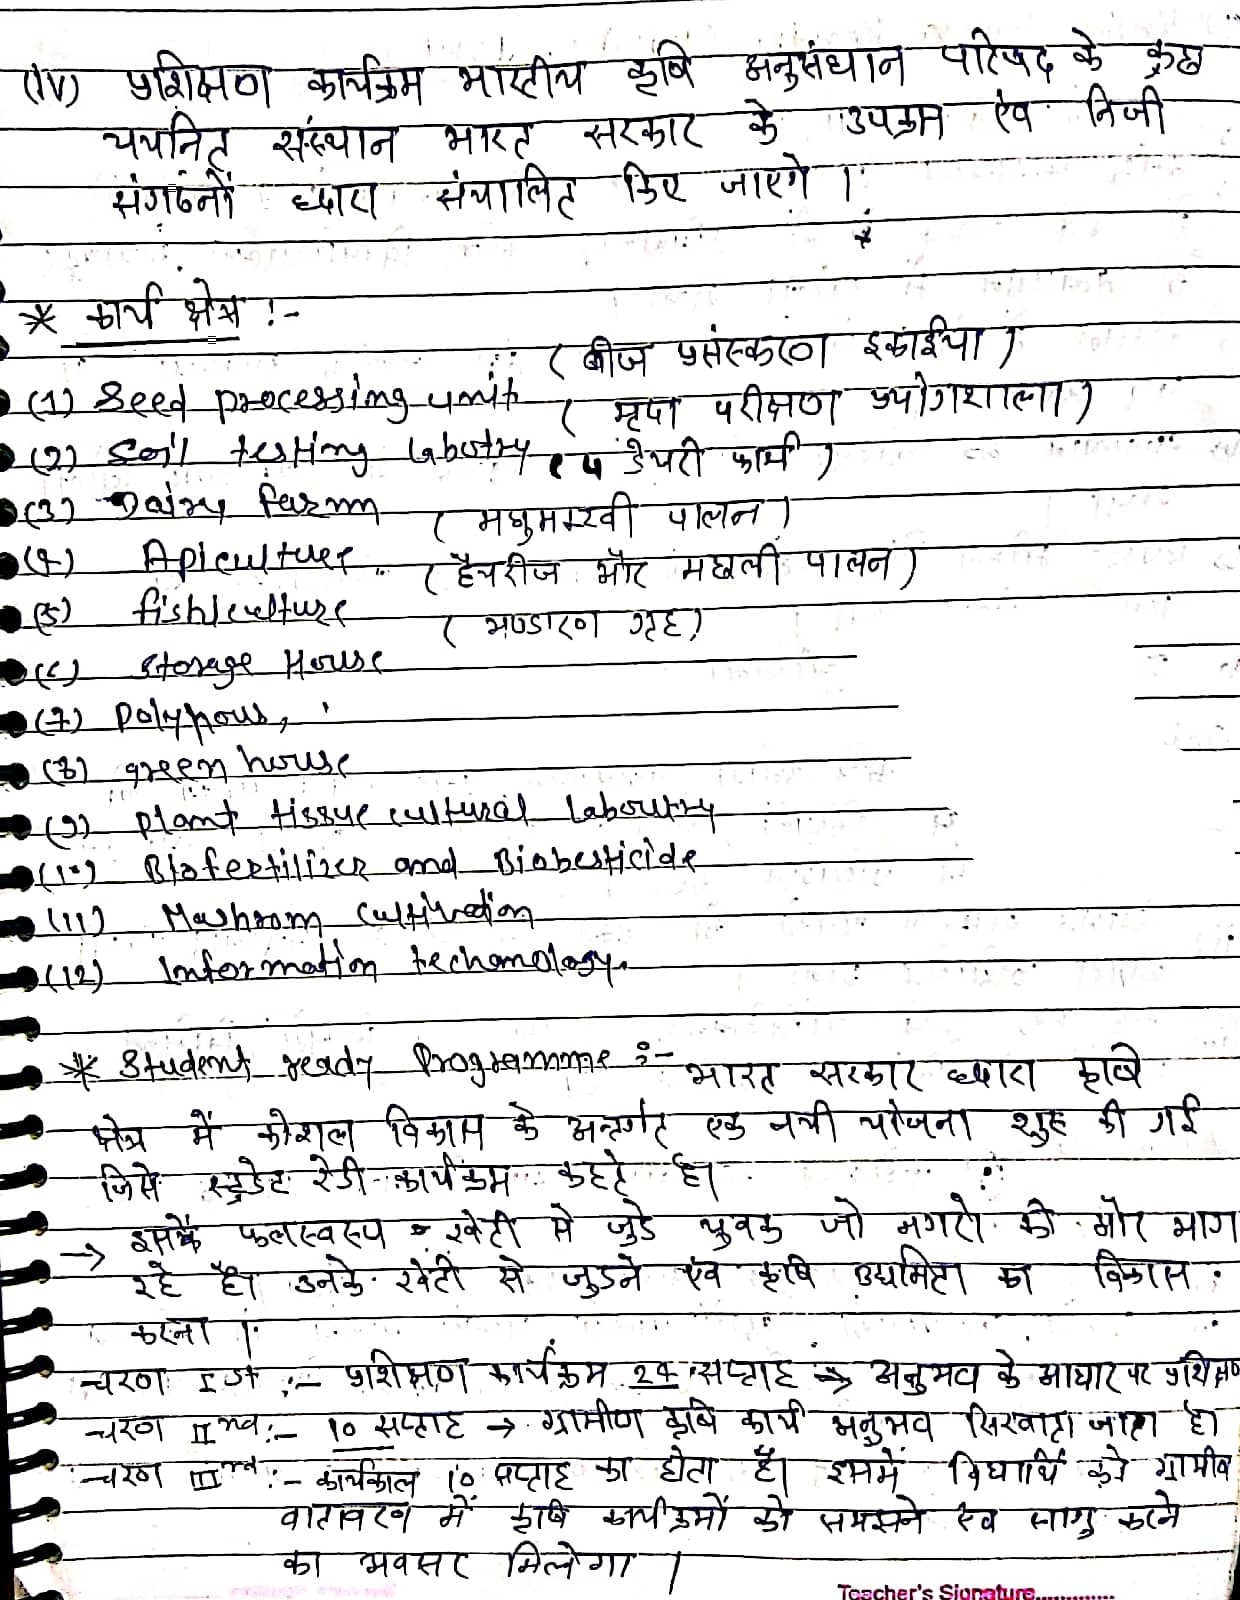 (IV) प्रशिक्षण कार्यक्रम भारतीय कृषि अनुसंधान परिषद के कुछ
चयनित संस्थान भारत सरकार के उपक्रम एंव निजी
संगठनों ध्दारा संचालित किए जाएगे ।
* कार्य क्षेत्र :-
(1) Seed processing unit ( बीज प्रसंस्करण इकाईया )
(2) Soil testing labotry ( मृदा परीक्षण प्रयोगशाला )
(3) Dairy farm ( डेयरी फार्म )
(4) Apiculture ( मधुमक्खी पालन )
(5) fishiculture ( हैचरीज और मछली पालन )
(6) Storage House ( भण्डारण गृह )
(7) Polyhous,
(8) green house
(9) plant tissue cultural laboutry
(10) Biofertilizer and Biobesticide
(11) Mashroom cultivation
(12) Information techonology.
* Student ready Programme :- भारत सरकार ध्दारा कृषि
क्षेत्र में कोशल विकास के अन्तर्गत एक नयी योजना शुरु की गई
जिसे स्टुडेट रेडी कार्यक्रम कहते है।
→ इसके फलस्वरुप खेती से जुडे युवक जो नगरो की ओर भाग
रहे है। उनके खेती से जुडने एंव कृषि उद्यमिता का विकास
करना ।
चरण Ist :- प्रशिक्षण कार्यक्रम 24 सप्ताह → अनुभव के आधार पर प्रशिक्षण
चरण IInd :- 10 सप्ताह → ग्रामीण कृषि कार्य अनुभव सिखाता जाता है।
चरण IIInd :- कार्यकाल 10 सप्ताह का होता है। इसमें विधार्थि को ग्रामीव
वातावरण में कृषि कार्यक्रमों को समझने एंव लागु करने
का अवसर मिलेगा ।
Teacher's Signature..............